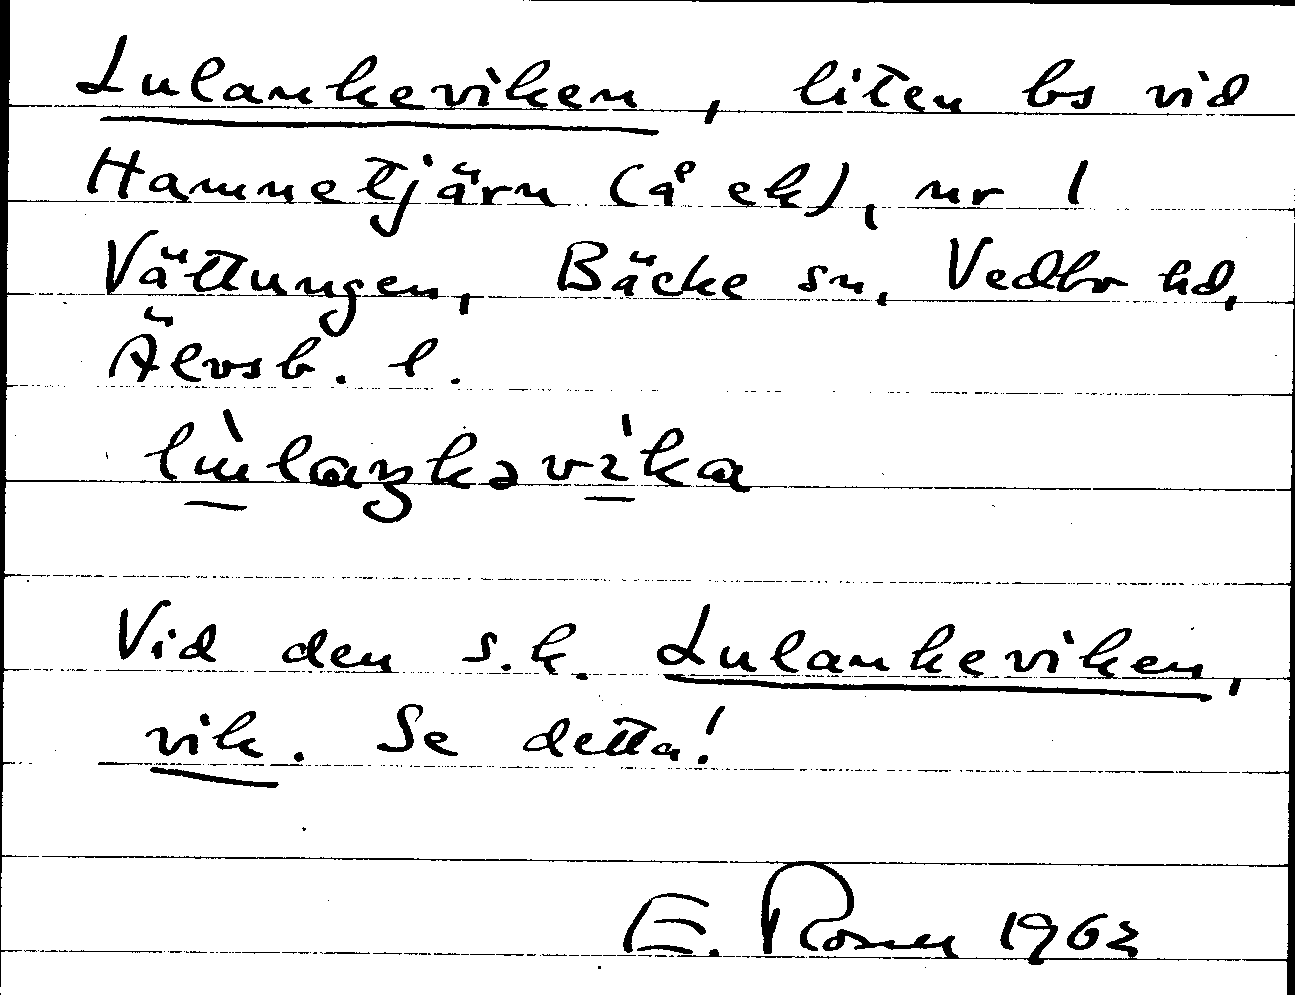 Lulankeviken, liten bs vid
Hammetjärn (å ek), nr 1
Vättungen, Bäcke sn, Vedbo hd,
Älvsb. l.
lùlaŋkəvi̍ka
Vid den s.k. Lulankeviken,
vik. Se detta!
E. Rosen 1962